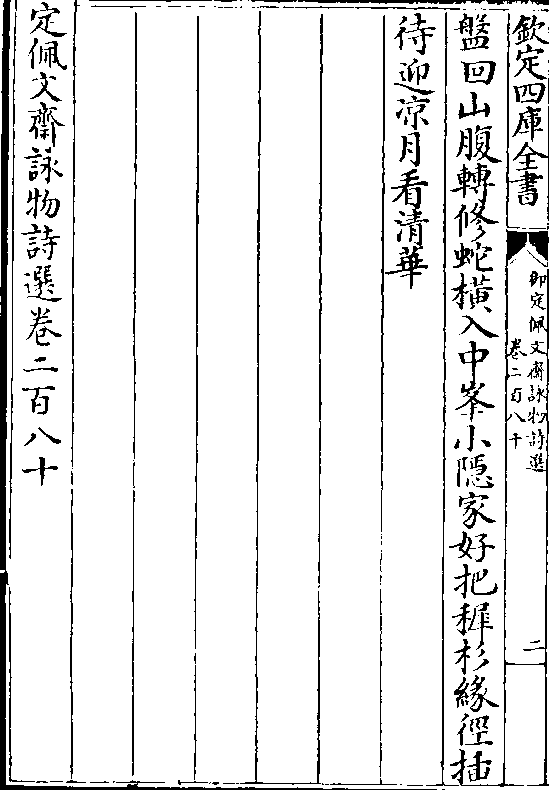 欽定四庫全書
御定佩文齋詠物詩選
卷二百八十
二
盤回山腹轉修蛇横入中峯小隱家好把稺杉緣徑揷
待迎凉月看清華
定佩文齋詠物詩選卷二百八十